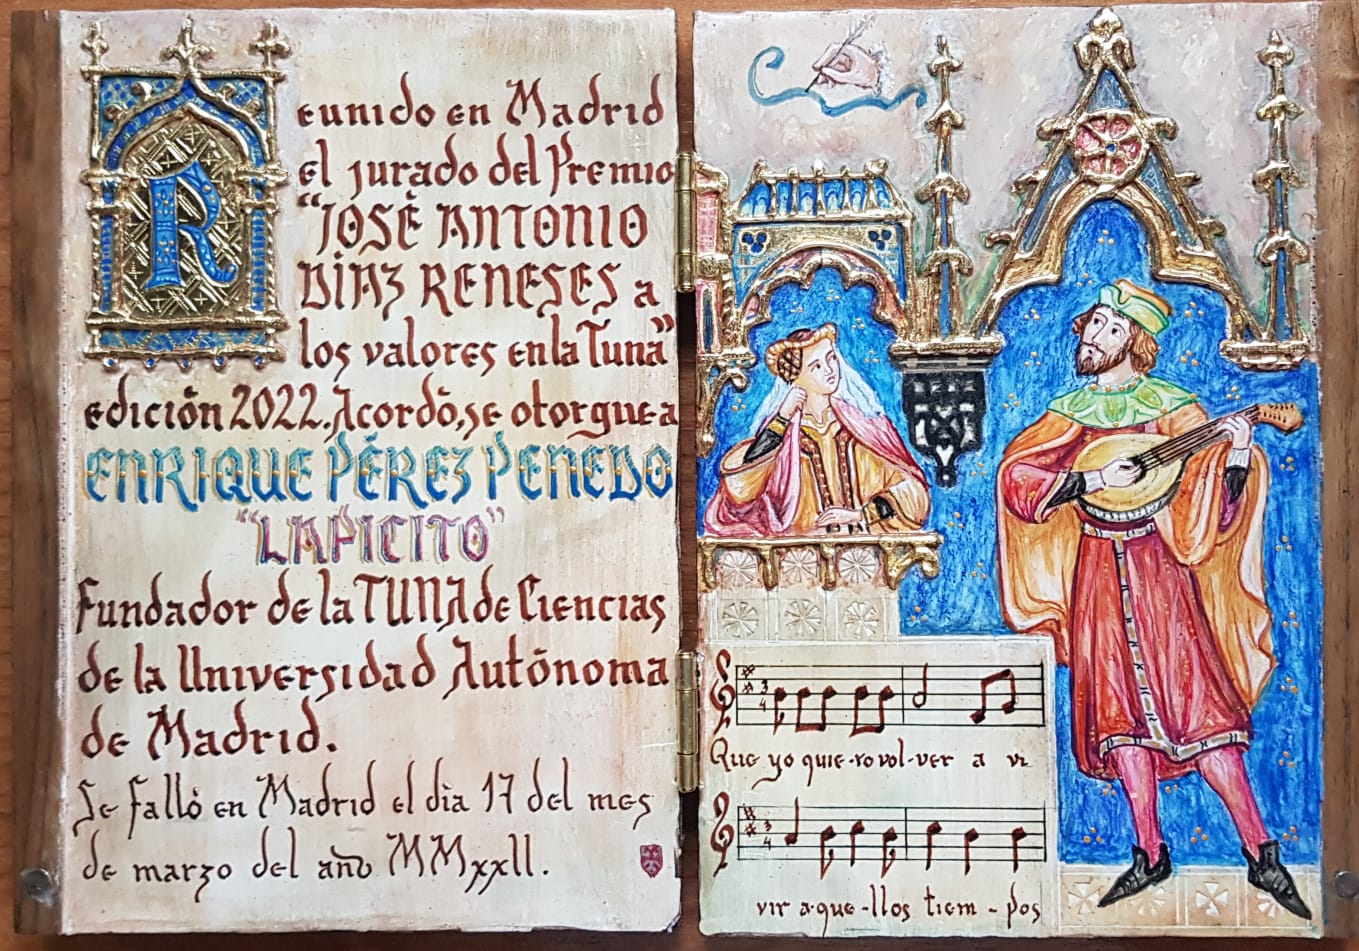 Reunido en Madrid
el jurado del Premio
"JOSÉ ANTONIO
DÍAZ RENESES a
los valores en la Tuna"
edición 2022. Acordó, se otorgue a
ENRIQUE PÉREZ PENEDO
"LAPICITO"
Fundador de la TUNA de Ciencias
de la Universidad Autónoma
de Madrid.
Se falló en Madrid el día 17 del mes
de marzo del año MMxxII.
3
4
Que yo quie-ro vol-ver a vi
3
4
vir a-que-llos tiem-pos